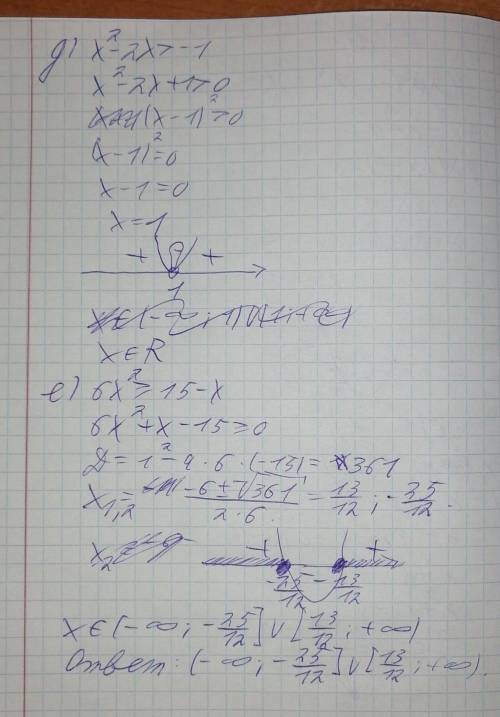 д) x²-2x>-1
x²-2x+1>0
(x-1)²>0
(x-1)²=0
x-1=0
x=1
+ +
1
x∈R
е) 6x²≥15-x
6x²+x-15≥0
D=1²-4·6·(-15)=361
x₁,₂= (-6±√361)/(2·6) = 13/12; -25/12.
x₂
+ - +
-25/12 13/12
x∈(-∞; -25/12]∪[13/12; +∞)
Ответ: (-∞; -25/12]∪[13/12; +∞).